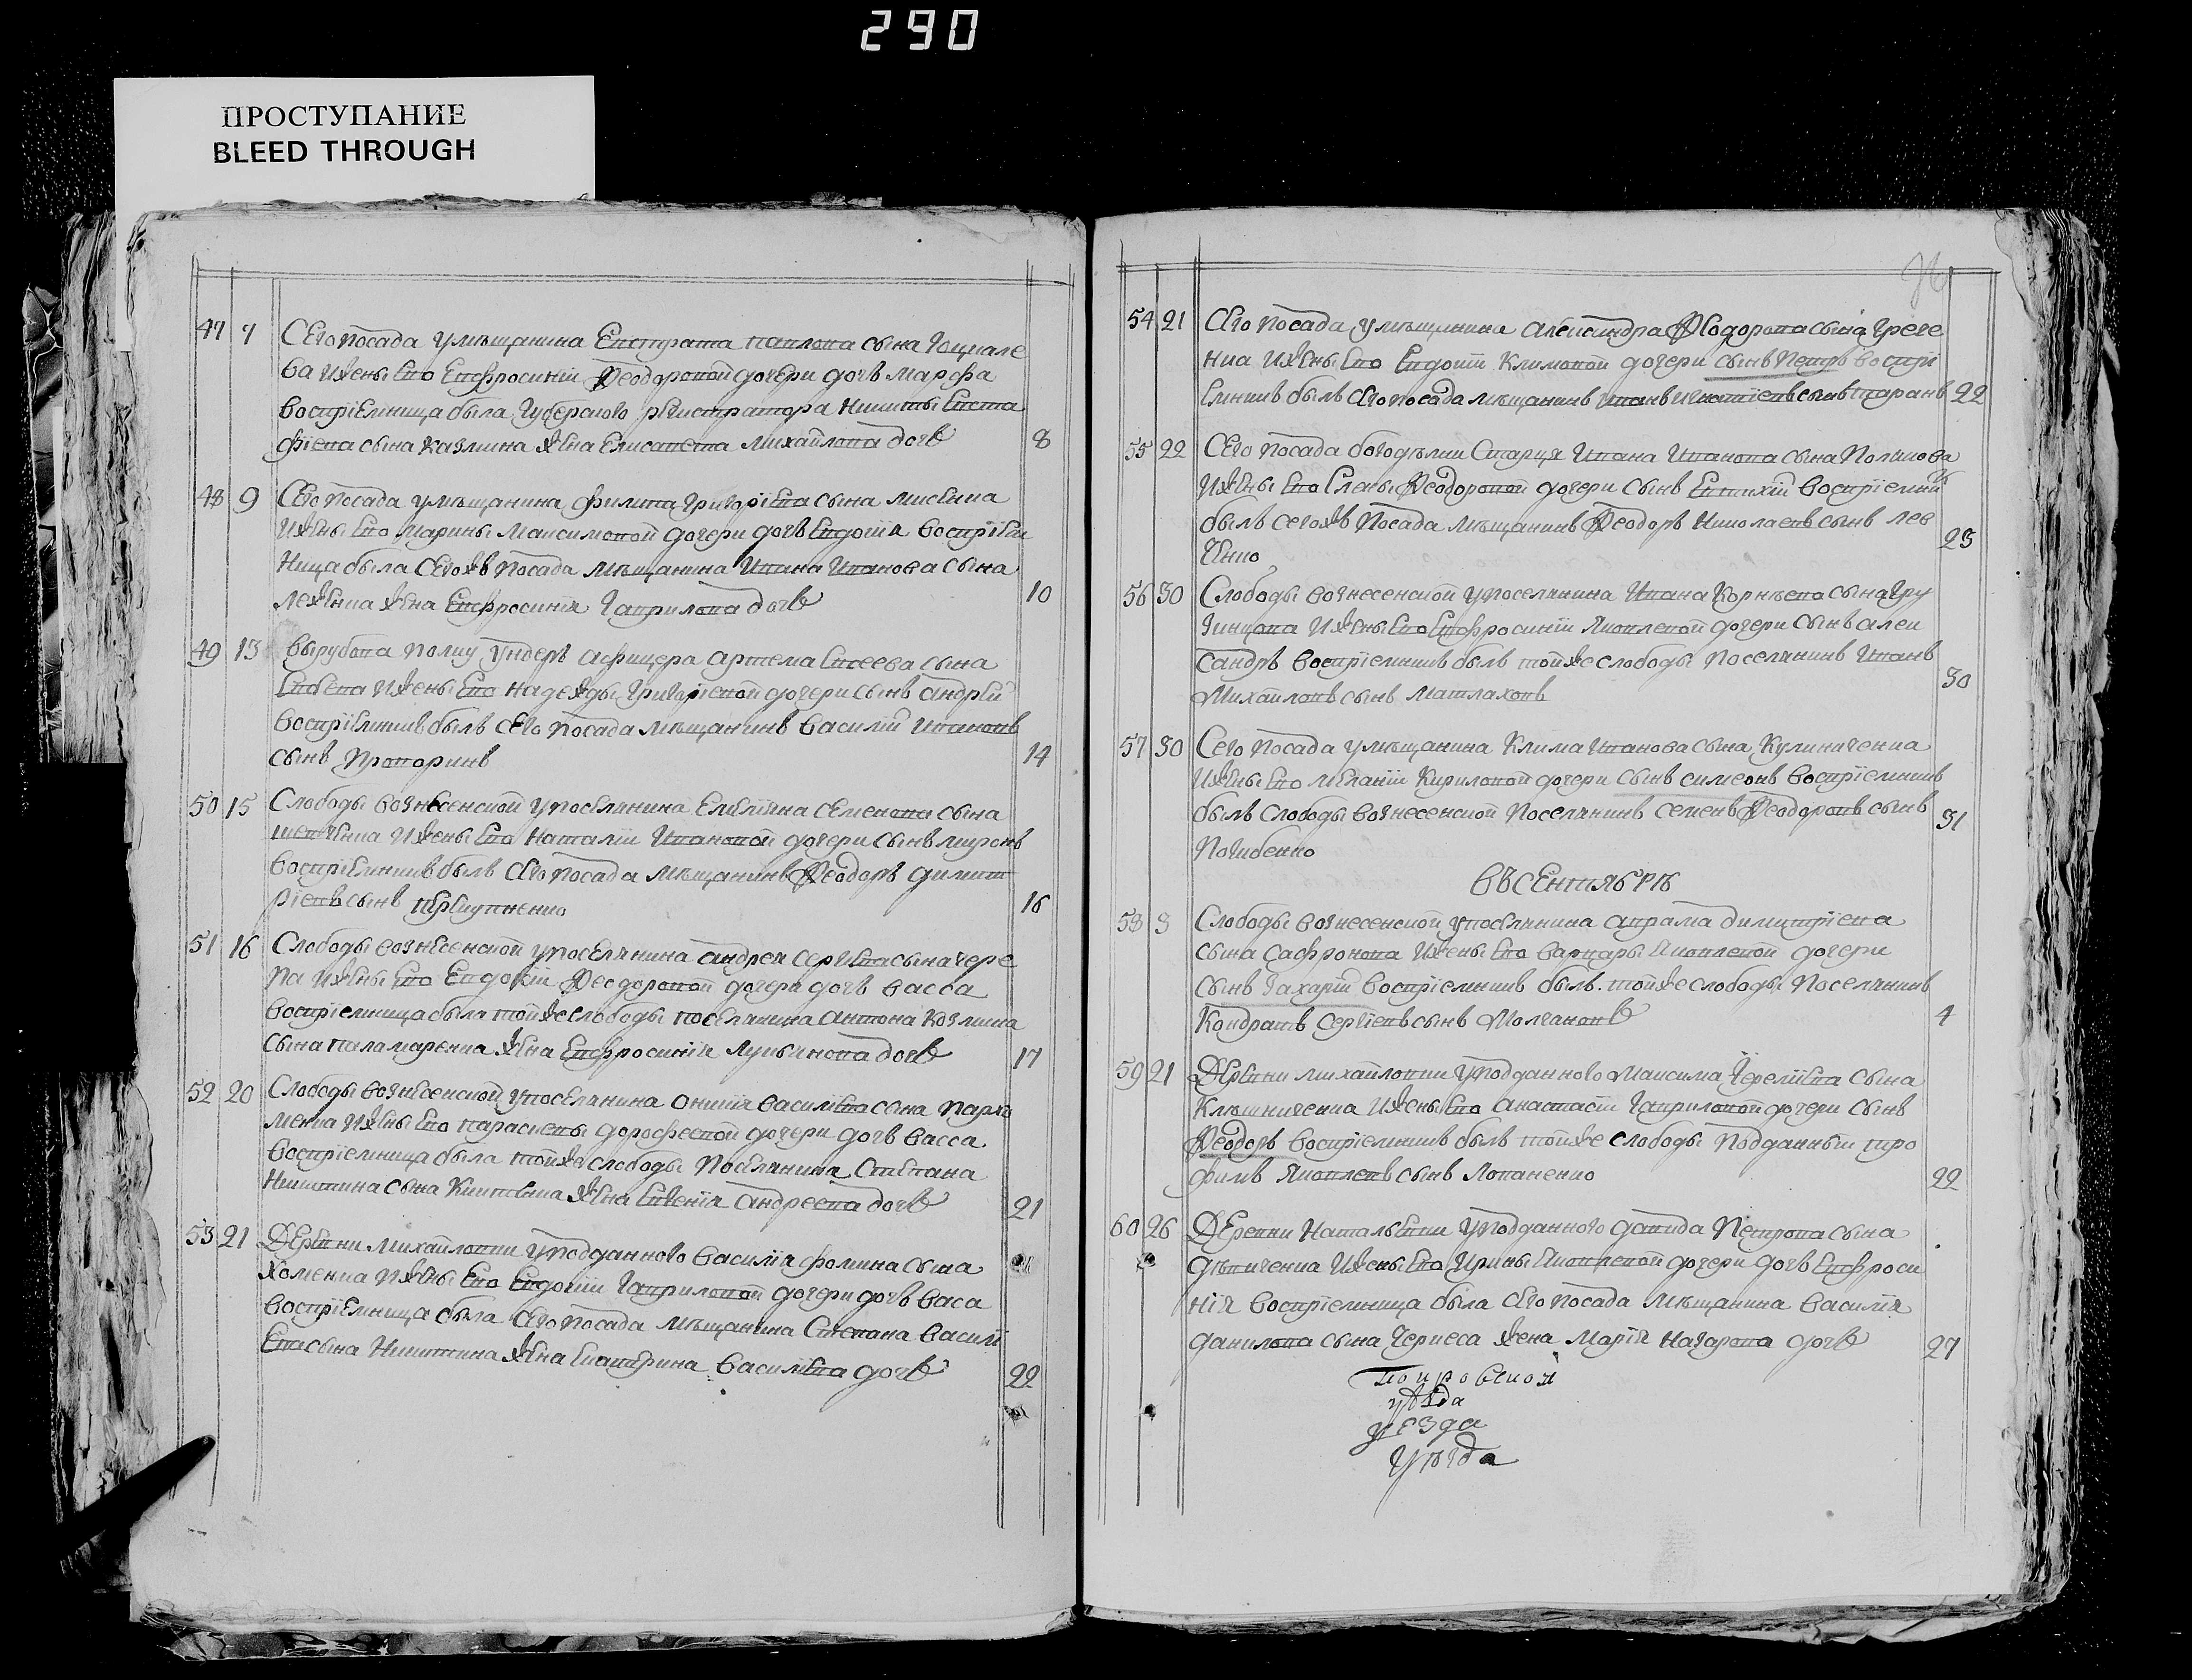 290
ПРОСТУПАНИЕ
BLEED THROUGH
47 7 Сего посада умѣщанина Евстрата павлова сына
ва ижены его Евфросиніи Ѳеодоровой дочери дочь марфа
воспріемница была, Губерского регистратора Никиты Евста
фіева сына казмина жена Елисавета михайлова дочь 8
48 9 Сего посада умѣщанина филипа григоріева сына
ижены его марины максимовой дочери дочь Евдокія воспріем
ница была сегожъ посада мѣщанина ивана иванова сына
жена Евфросинія гаврилова дочь 10
49 13 полку ундеръ афицера артема сына
ижены его надежды григоріевой дочери сынъ андрей
воспріемникъ былъ сего посада мѣщанинъ василий ивановъ
сынъ 14
50 15 Слободы вознесенской упоселянина Емеліяна семенова сына
шевченка ижены его наталіи ивановой дочери сынъ миронъ
воспріемникъ былъ сего посада мѣщанинъ Ѳеодоръ димит
ріевъ сынъ 16
51 16 Слободы вознесенской упоселянина андрея сергіева сына чере
па ижены его Евдокіи Ѳеодоровой дочери дочь васса
воспріемница была тойже слободы поселянина антона козмина
сына паламаренка жена Евфросинія лукьянова дочь 17
52 20 Слободы вознесенской упоселянина василіева сына пархо
менка ижены его параскевы дорофеевой дочери дочь васса
воспріемница была тойже слободы поселянина Степана
никитина сына жена Евгенія андреева дочь 21
53 21 Деревни михайловки уподданного василія фомина сына
хоменка ижены его Евдокіи гавриловой дочери дочь васа
воспріемница была сего посада мѣщанина Степана василі
ева сына никитина жена Екатерина василіева дочь 22
54 21 Сего посада, умѣщанина александра Ѳеодорова сына грече
нка ижены его Евдокіи климовой дочери сынъ петръ воспрі
емникъ былъ сего посада мѣщанинъ иванъ игнатіевъ сынъ таранъ 22
55 22 Сего посада богодѣлни Старца ивана иванова сына полякова
ижены его Елены Ѳеодоровой дочери сынъ Евтихій воспріемникъ
былъ сегожъ посада мѣщанинъ Ѳеодоръ николаевъ сынъ лев
ченко 23
56 30 Слободы вознесенской упоселянина ивана корнѣева сына гру
зинцова ижены его Евфросиніи яковлевой дочери сынъ алек
сандръ воспріемникъ былъ тойже слободы поселянинъ иванъ
михайловъ сынъ матлаховъ 30
57 30 Сего посада умѣщанина клима иванова сына, кулиниченка
ижены его меланіи кириловой дочери сынъ симеонъ воспріемникъ
былъ слободы вознесенской поселянинъ семенъ Ѳеодоровъ сынъ
погибенко 31
въ сентябрѣ
58 3 Слободы вознесенской упоселянина аврама димитріева
сына сафронова ижены его варвары яковлевой дочери
сынъ захарій воспріемникъ былъ. тойже слободы поселянинъ
кондратъ сергіевъ сынъ молчановъ 4
59 21 Деревни михайловки уподданного максима сына
ижены его анастасіи гавриловой дочери сынъ
Ѳеодоръ воспріемникъ былъ тойже слободы подданный тро
фимъ яковлевъ сынъ лопаненко 22
60 26 Деревни натальевки уподданного давида петрова сына
ижены его ирины яковлевой дочери дочь Евфроси
нія воспріемница была сего посада мѣщанина василія
данилова сына черкеса жена марія назарова дочь 27
покровской
уѣзда
уезда
уѣзда